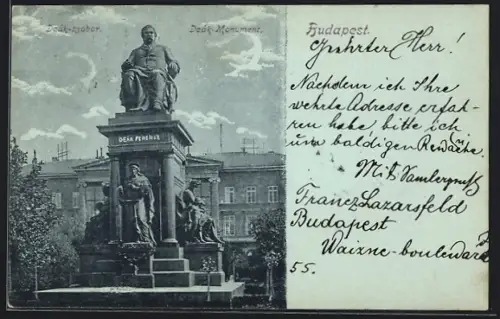 Deák-szobor.
Deák-Monument.
Budapest.
DEÁK FERENCZ
Geehrter Herr!
Nachdem ich Ihre
wehrte Adresse erfah-
ren habe bitte ich
um baldigen Revache.
Mit Samlergruß
Franz Lazarsfeld
Budapest
Waizne-boulevard
55.